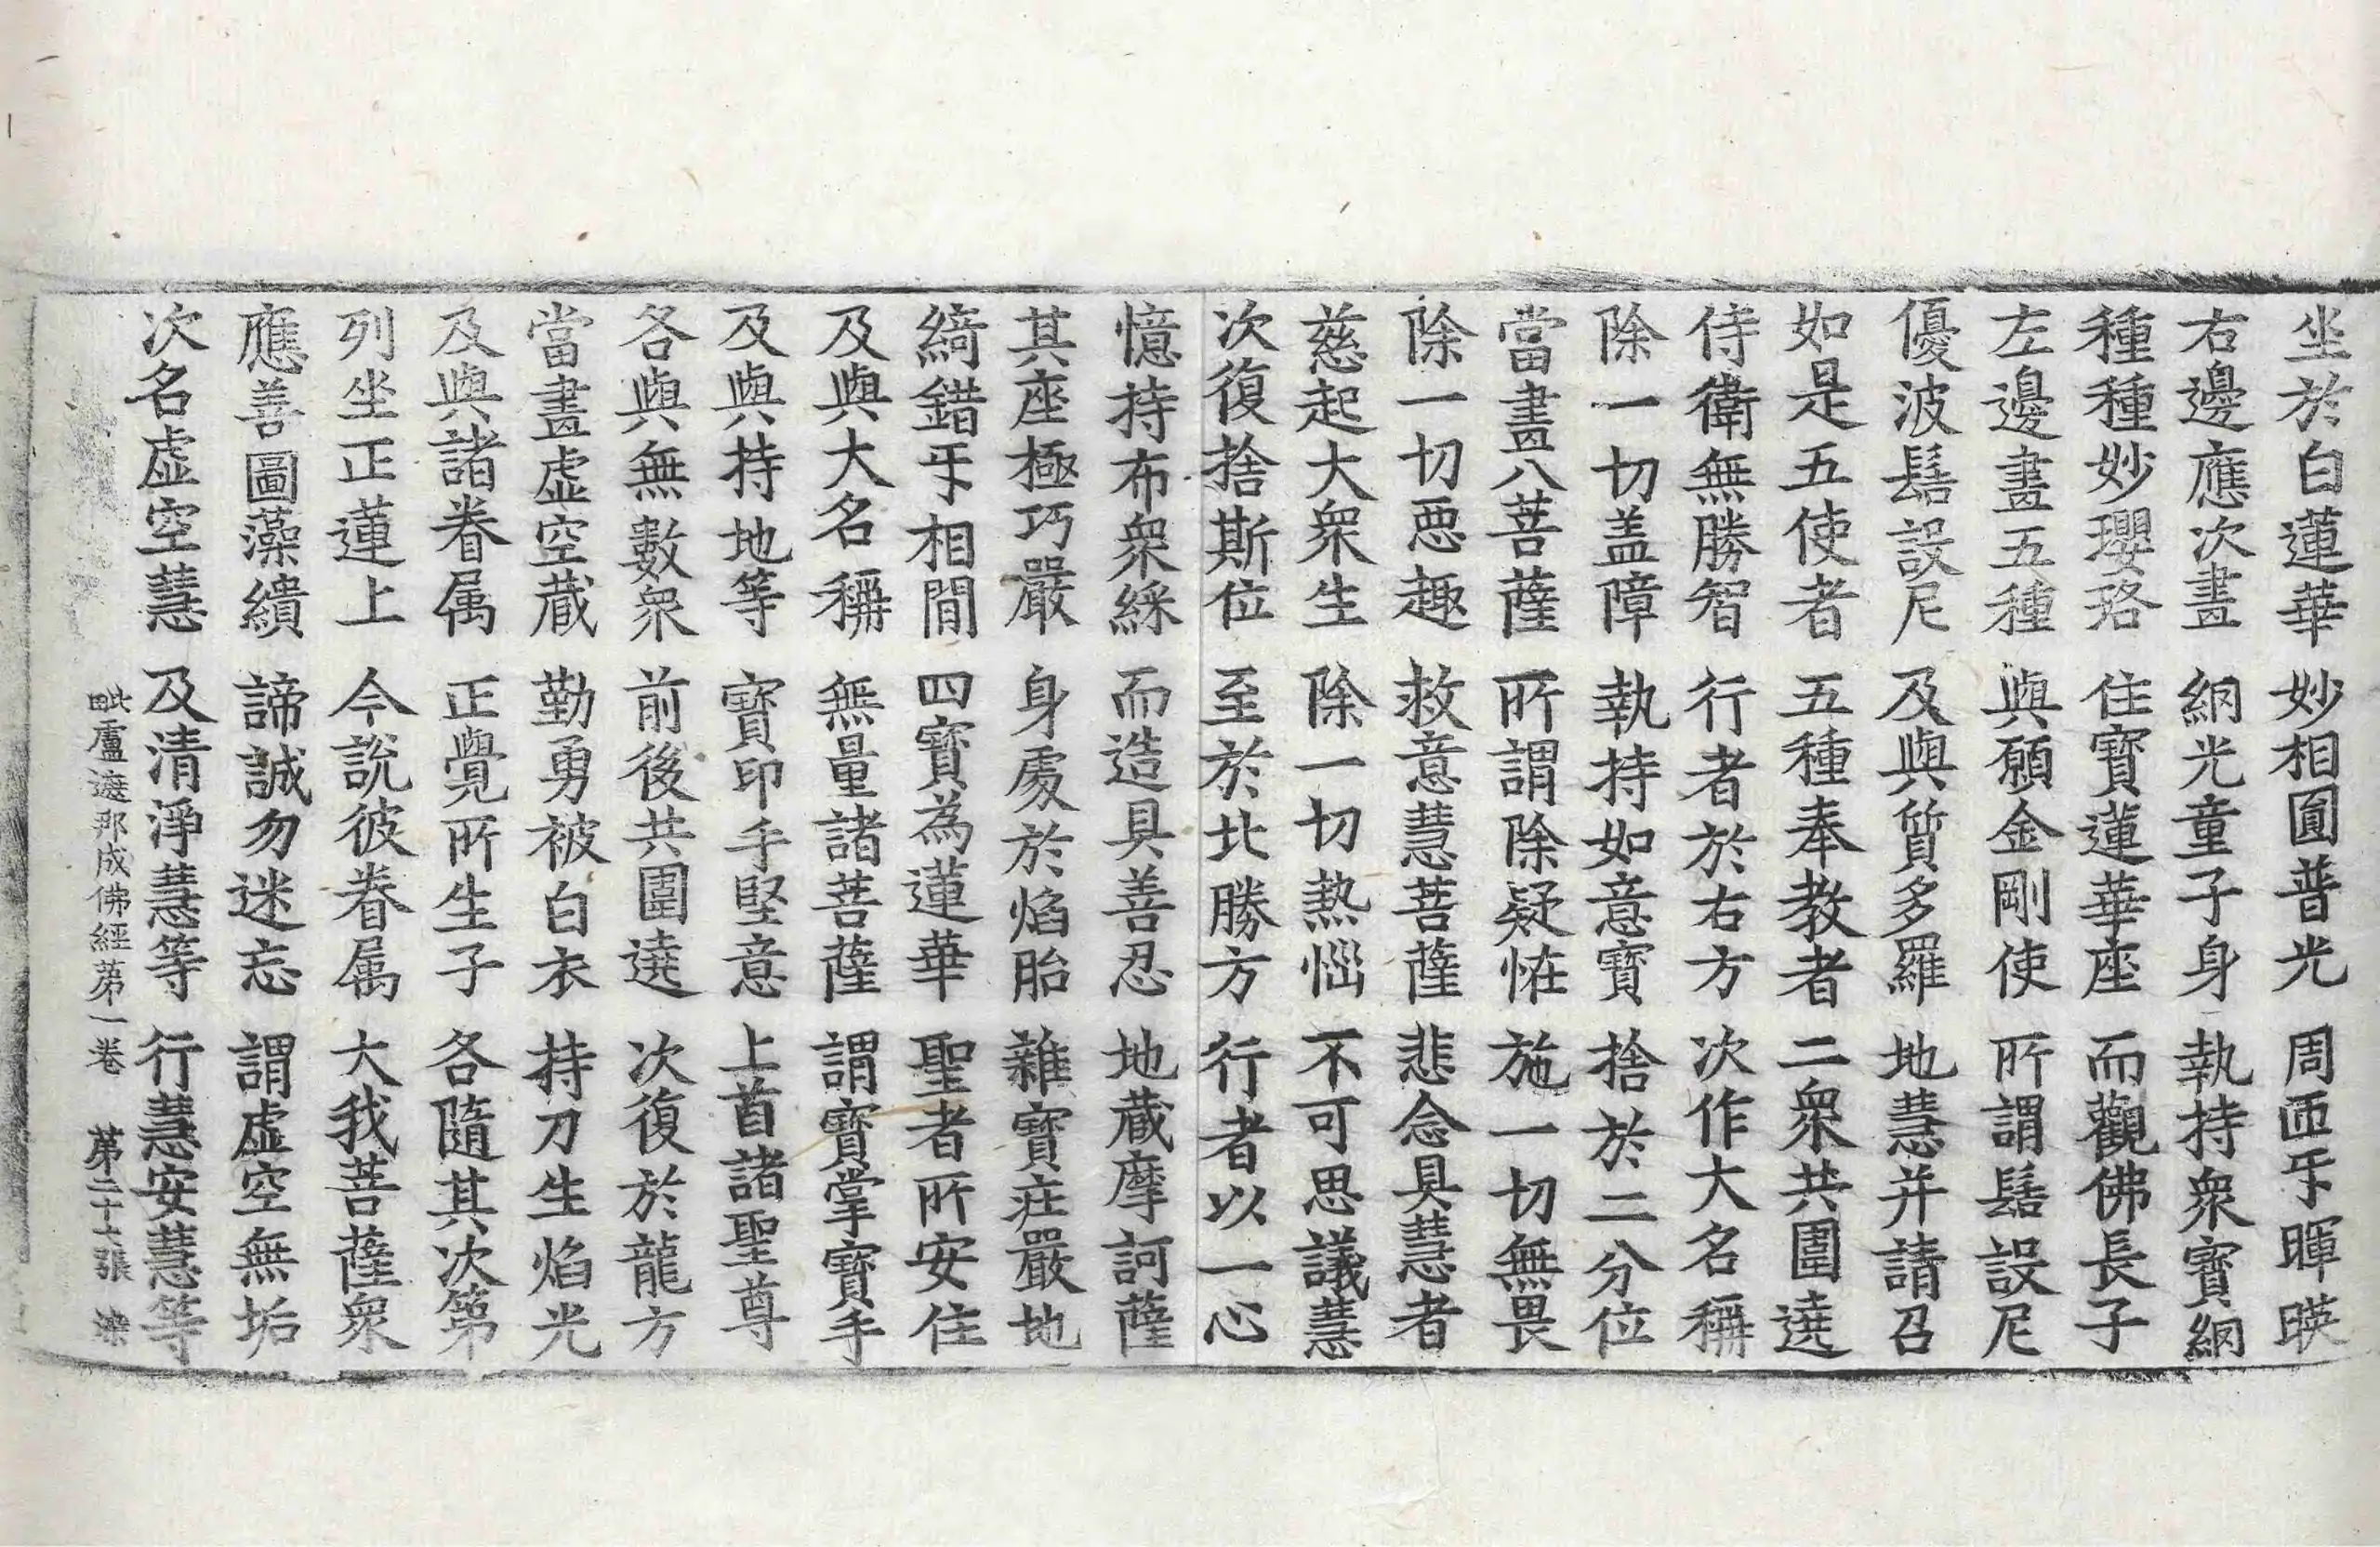 坐於白蓮華 妙相圎普光 周匝㸦暉暎
右邊應次畫 網光童子身 執持衆寶網
種種妙瓔珞 住寶蓮華座 而觀佛長子
左邊畫五種 與願金剛使 所謂髻設尼
優波髻設尼 及與質多羅 地慧并請召
如是五使者 五種奉教者 二衆共圍遶
侍衛無勝智 行者於右方 次作大名稱
除一切盖障 執持如意寶 捨於二分位
當畫八菩薩 所謂除疑恠 施一切無畏
除一切惡趣 救意慧菩薩 悲念具慧者
慈起大衆生 除一切熱惱 不可思議慧
次復捨斯位 至於北勝方 行者以一心
憶持布衆綵 而造具善忍 地蔵摩訶薩
其座極巧嚴 身處於焰胎 雜寶莊嚴地
綺錯㸦相間 四寶為蓮華 聖者所安住
及與大名稱 無量諸菩薩 謂寶掌寶手
及與持地等 寶印手堅意 上首諸聖尊
各與無數衆 前後共圍遶 次復於龍方
當畫虛空蔵 勤勇被白衣 持刀生焰光
及與諸眷属 正覺所生子 各隨其次第
列坐正蓮上 今說彼眷属 大我菩薩衆
應善圖藻繢 諦誠勿迷忘 謂虛空無垢
次名虛空慧 及清淨慧等 行慧安慧等
毗盧遮那成佛經第一卷 第二十七張 染